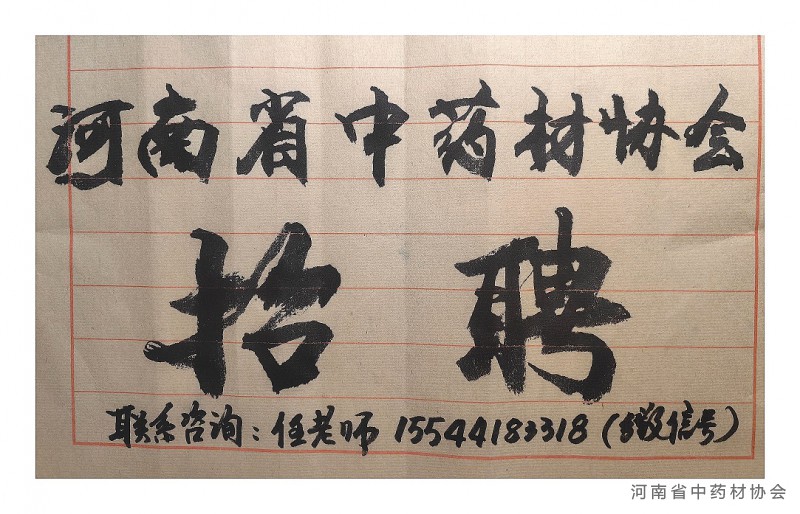 河南省中药材协会
招聘
联系咨询：任老师 15544183318（微信号）
河南省中药材协会